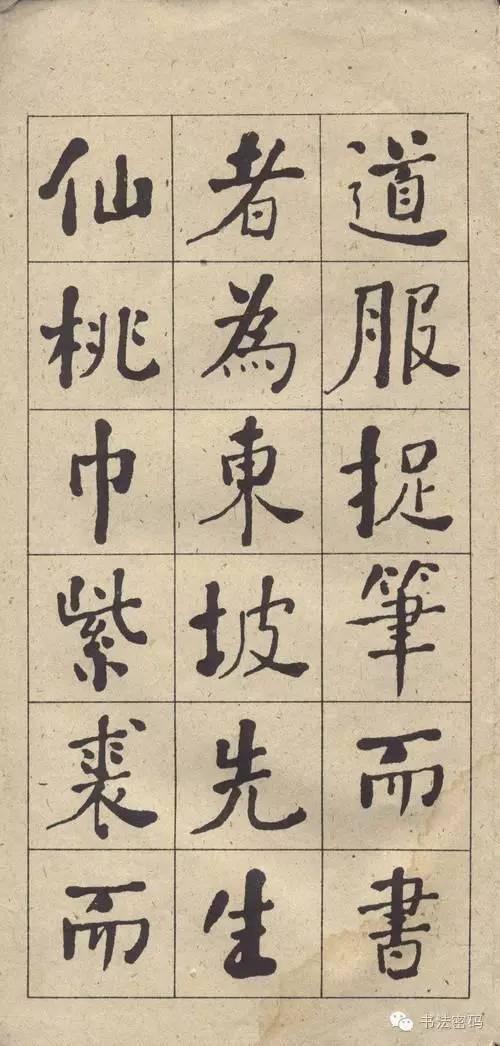 道服捉筆而書
者為東坡先生
仙桃巾紫裘而
书法密码